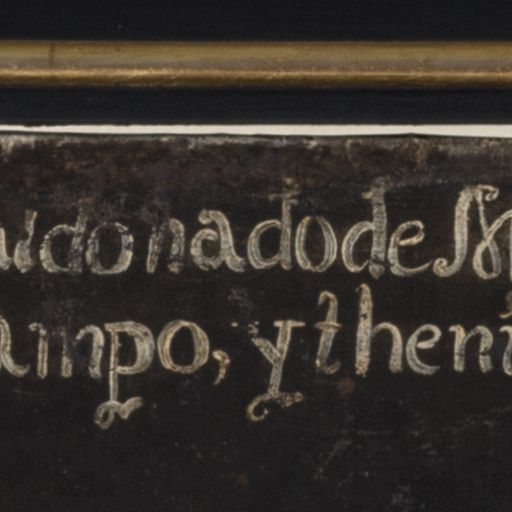 aldonado de M
ampo, y theni